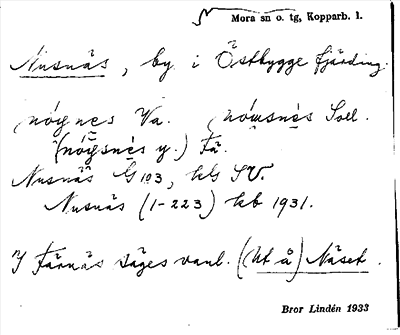 Mora sn o. tg, Kopparb. l.
Nusnäs, by i Östbygge fjärding.
nógnes Va. nósnès Soll.
(nógsnès y.) Få.
Nusnäs G 103, hls SV.
Nusnäs (1-223) kb 1931.
I Färnäs säges vanl. (Ut å) Näset.
Bror Lindén 1933